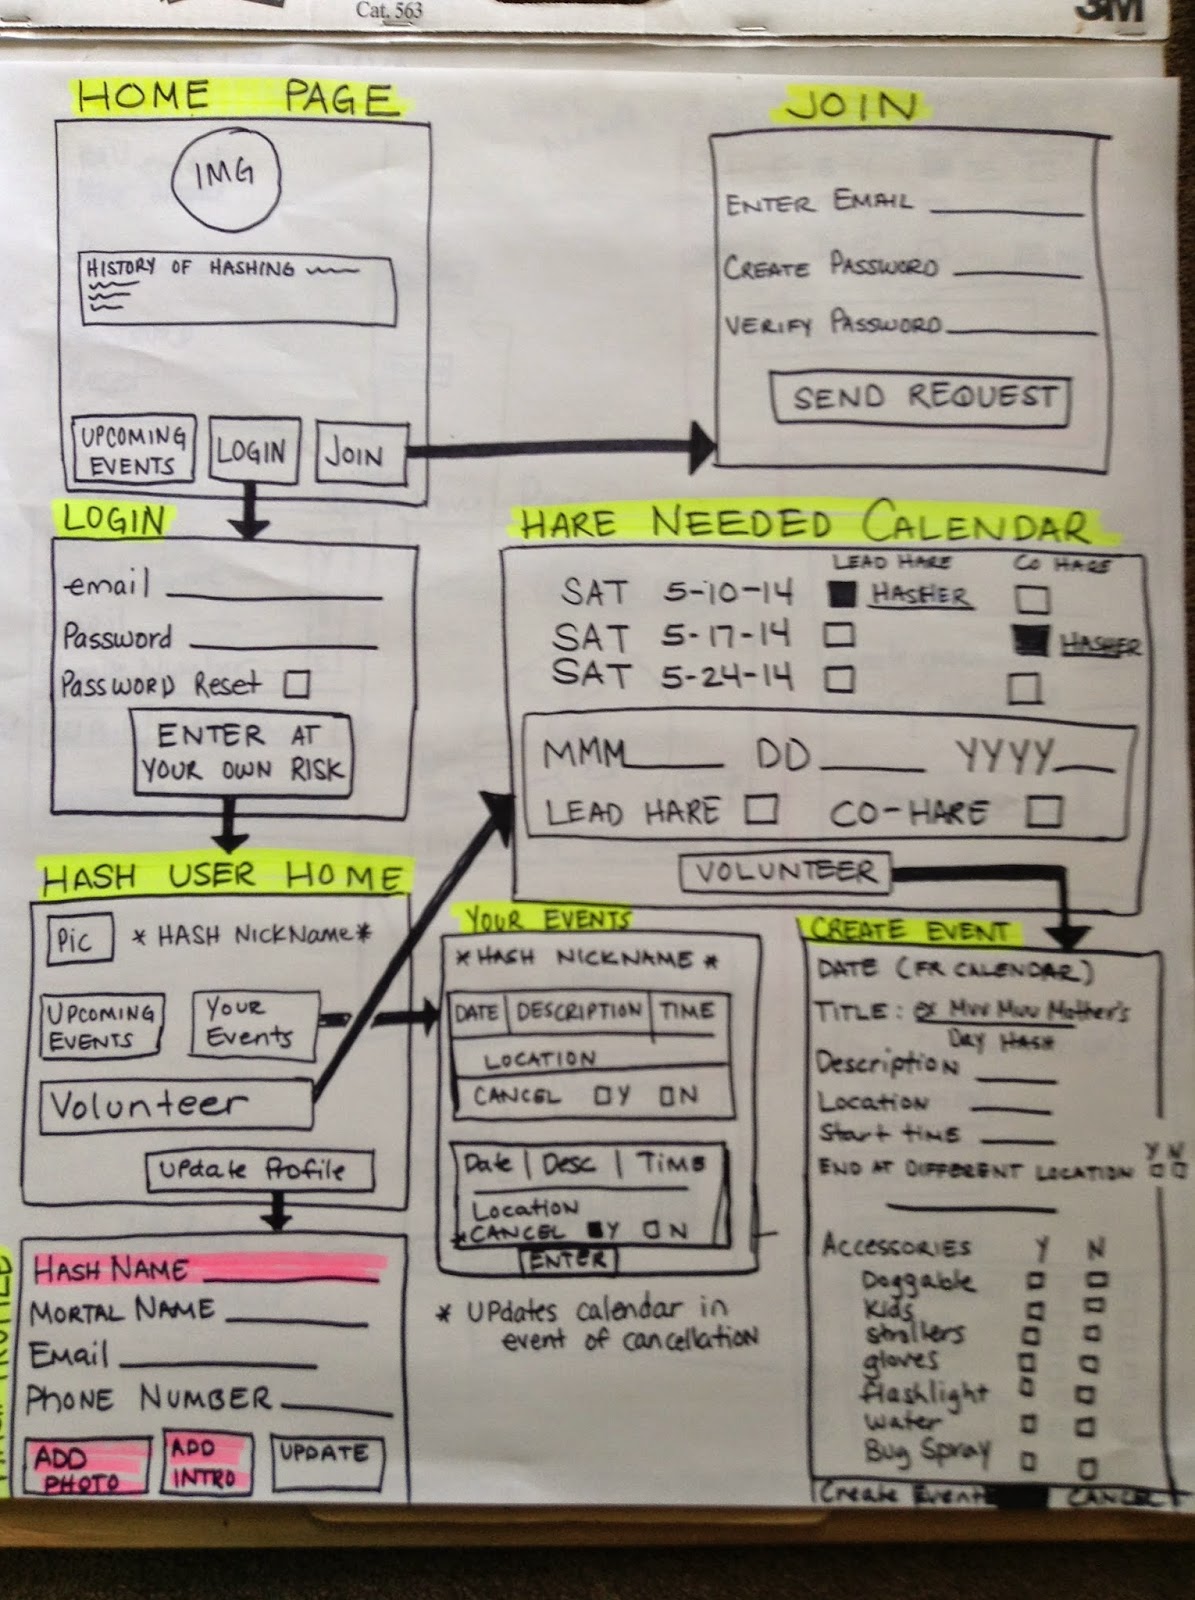 Cat. 563
3M
HOME PAGE
IMG
HISTORY OF HASHING
UPCOMING
EVENTS
LOGIN
JOIN
JOIN
ENTER EMAIL
CREATE PASSWORD
VERIFY PASSWORD
SEND REQUEST
LOGIN
email
Password
PASSWORD Reset
ENTER AT
YOUR OWN RISK
HARE NEEDED CALENDAR
LEAD HARE CO HARE
SAT 5-10-14 HASHER
SAT 5-17-14 HASHER
SAT 5-24-14
MMM DD YYYY
LEAD HARE CO-HARE
VOLUNTEER
HASH USER HOME
Pic * HASH NICKNAME *
UPCOMING
EVENTS
Your
Events
Volunteer
Update Profile
HASH NAME
MORTAL NAME
EMAIL
PHONE NUMBER
ADD
PHOTO
ADD
INTRO
UPDATE
YOUR EVENTS
* HASH NICKNAME *
DATE DESCRIPTION TIME
LOCATION
CANCEL Y N
Date Desc TIME
Location
*CANCEL Y N
ENTER
* UPdates calendar in
event of cancellation
CREATE EVENT
DATE (FR CALENDAR)
TITLE: ex Muu Muu Mother's
DAY HASH
Description
Location
Start time
Y N
END AT DIFFERENT LOCATION
ACCESSORIES Y N
Doggable
Kids
strollers
gloves
flashlight
water
Bug Spray
Create Event CANCEL